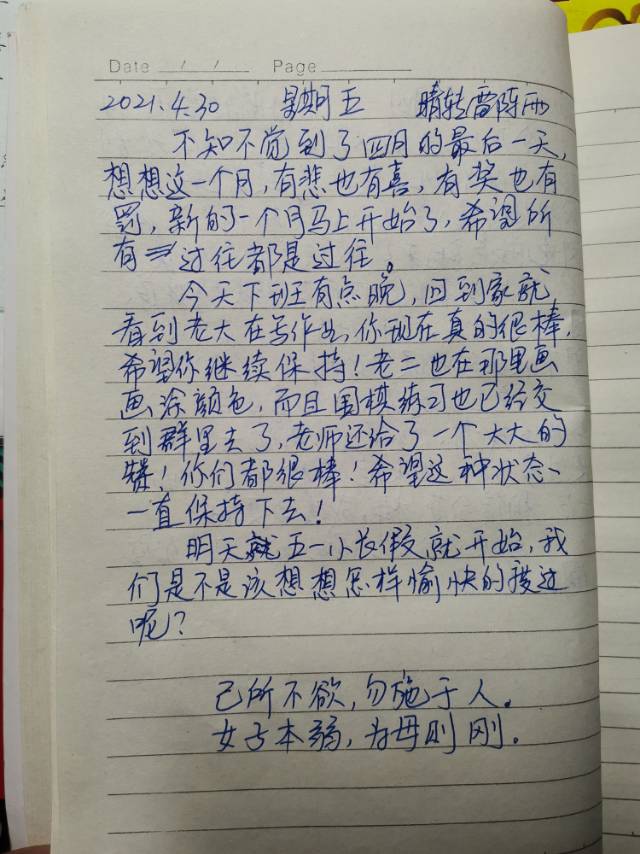 Date / / Page
2021.4.30 星期五 晴转雷阵雨
不知不觉到了四月的最后一天,
想想这一个月,有悲也有喜,有奖也有
罚,新的一个月马上开始了,希望所
有过往都是过往。
今天下班有点晚,回到家就
看到老大在写作业,你现在真的很棒,
希望你继续保持!老二也在那里画
画涂颜色,而且围棋练习也已经交
到群里去了,老师还给了一个大大的
赞!你们都很棒!希望这种状态、
一直保持下去!
明天就五一小长假就开始,我
们是不是该想想怎样愉快的度过
呢?
己所不欲,勿施于人。
女子本弱,为母则刚。